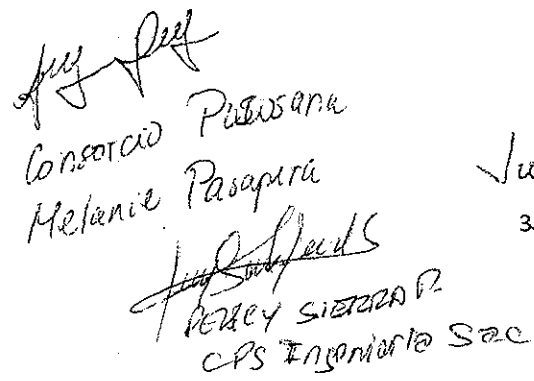 Consorcio Pasusana
Melanie Pasapera
Ju
3
PERCY SIERRA P.
CPS Ingeniería SAC